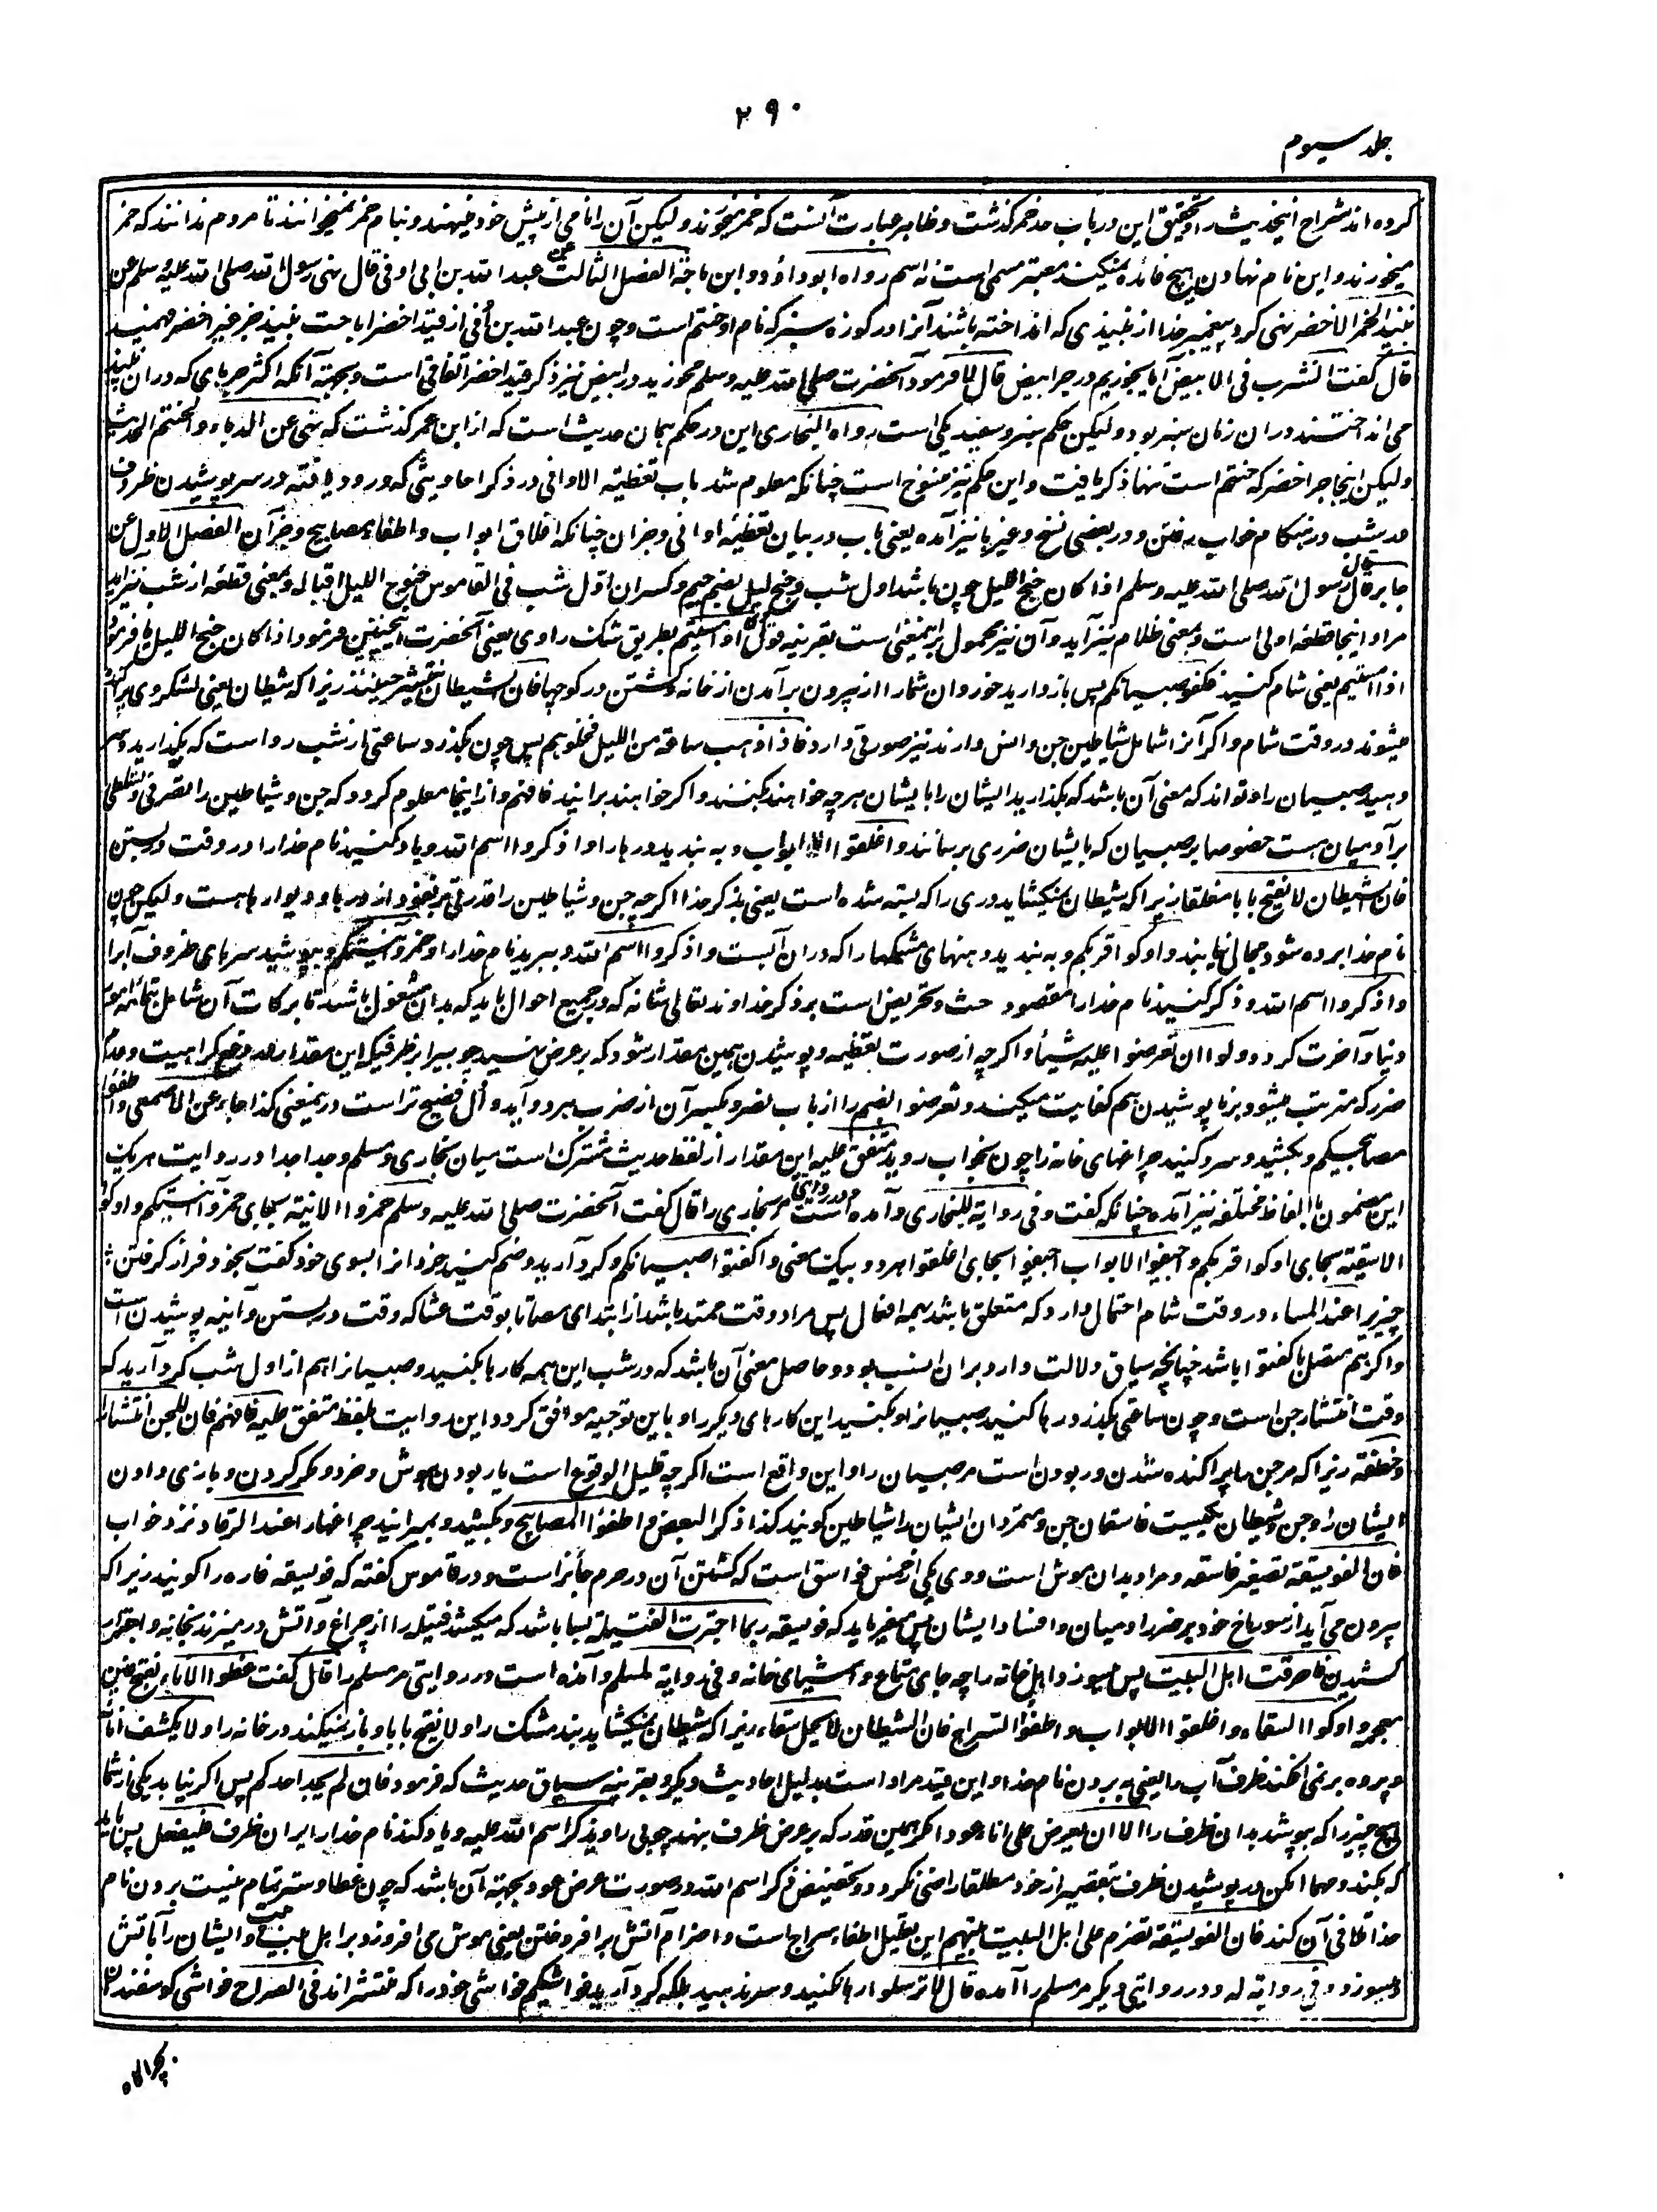 ۲۹۰
جلد سیوم
کرده اند شراح اینحدیث را و تحقیق این در باب حد خمر کذشت و ظاهر عبارت آنست که خمر میخورند ولیکن آن را نامی از پیش خود مینهند و بنام خمر نمیخوانند تا مردم ندانند که خمر
میخورند و این نام نهادن هیچ فائده نمیکند معتبر مسمی است نه اسم رواه ابو داؤد و ابن ماجة الفصل الثالث عن عبد الله بن ابی اوفی قال نهی رسول الله صلی الله علیه وسلم عن
نبیذ الجر الاخضر نهی کرد پیغمبر خدا از نبیذی که انداخته باشند آنرا در کوزه سبز که نام او حنتم است و چون عبد الله بن اُفی از قید اخضر اباحت نبیذ جر غیر اخضر فهمید
قال کفت انشرب فی الابیض آیا بخوریم در جر ابیض قال لا فرمود آنحضرت صلی الله علیه وسلم مخورید در ابیض نیز ذکر قید اخضر اتفاقی است و بجهته آنکه اکثر جرهای که دران نبیذ
می انداختند دران زمان سبز بود ولیکن حکم سبز و سفید یکی است رواه البخاری این در حکم همان حدیث است که از ابن عمر کذشت که نهی عن الدباء والحنتم الحدیث
ولیکن اینجا جر اخضر که حنتم است تنها ذکر یافت و این حکم نیز منسوخ است چنانکه معلوم شد باب تغطیة الاوانی در ذکر احادیثی که ورود یافته در سر پوشیدن ظروف
در شب و در هنکام خواب رفتن و در بعضی نسخ وغیرها نیز آمده یعنی باب در بیان تغطیه اوانی و جزان چنانکه اغلاق ابواب و اطفاء مصابیح و جز آن الفصل الاول عن
جابر قال قال رسول الله صلی الله علیه وسلم اذا کان جنح اللیل چون باشد اول شب و جنح لیل بضم جیم و کسر ان اول شب فی القاموس جنوح اللیل اقباله و بمعنی قطعه از شب نیز اید
مراد اینجا قطعه اولی است و بمعنی ظلام نیز آید و آن نیز محمول بر اینمعنی است بقرینه قول او امسیتم بطریق شک راوی یعنی آنحضرت اینچنین فرمود اذا کان جنح اللیل یا فرمود
اذا امسیتم یعنی شام کنید فکفوا صبیانکم پس باز دارید خوردان شما را از بیرون برآمدن از خانه و کشتن در کوچها فان الشیطان ینتشر حینئذ زیرا که شیطان یعنی لشکر وی پراکنده
میشوند در وقت شام و اکر آنرا شامل شیاطین جن و انس دارند نیز صورتی دارد فاذا ذهب ساعة من اللیل فخلوهم پس چون بکذرد ساعتی از شب رواست که بکذارید و سر
دهید صبیان را و تواند که معنی آن باشد که بکذارید ایشان را با یشان هر چه خواهند بکنند و اکر خواهند برانید فافهم و از اینجا معلوم کردد که جن و شیاطین را تصرفی و تسلطی
بر آدمیان هست خصوصا بر صبیان که بایشان ضرری برسانند و اغلقوا الابواب و به بندید درها را و اذکروا اسم الله و یاد کنید نام خدا را در وقت در بستن
فان الشیطان لا یفتح بابا مغلقا زیرا که شیطان نمیکشاید دری را که بسته شده است یعنی بذکر خدا اکرچه جن و شیاطین را قدرتی بر نفوذ از درها و دیوارها هست ولیکن چون
نام خدا برده شود مجالی نیابند و اوکوا قربکم و به بندید دهنهای مشکها را که دران آبست و اذکروا اسم الله و ببرید نام خدا را و خمروا آنیتکم و بپوشید سرهای ظروف آبرا
واذکروا اسم الله و ذکر کنید نام خدا را مقصود حث و تحریض است بر ذکر خداوند تعالی شانه که در جمیع احوال باید که بدان مشغول باشد تا برکات آن شامل تمامه امور
دنیا و آخرت کردد ولو ان تعرضوا علیه شیئا و اکرچه از صورت تغطیه و پوشیدن همین مقدار شود که بر عرض بنهید چوبی را بر ظرفیکه این مقدار در دفع کراهیت و عدم
ضرر که مترتب میشود بر نا پوشیدن هم کفایت میکند و تعرضوا الضم را از باب نصر و بکسر آن از ضرب هر دو آید و اُل فصیح تر است در ینمعنی کذا جاء عن الاصمعی و اطفئوا
مصابیحکم و بکشید و سرد کنید چراغهای خانه را چون بخواب روید متفق علیه این مقدار از لفظ حدیث مشترک است میان بخاری و مسلم و جدا جدا در روایت هر یک
این مضمون با الفاظ مختلفه نیز آمده چنانکه کفت و فی روایة للبخاری و آمده است در روایتی مر بخاری را قال کفت آنحضرت صلی الله علیه وسلم خمروا الانیة بجای خمروا آنیتکم و اوکوا
الاسقیة بجای اوکوا قربکم و اجیفوا الابواب اجیفوا بجای اغلقوا هر دو بیک معنی و اکفتوا صبیانکم و کرد آرید و ضم کنید خردانرا بسوی خود کفت بخود فراز کرفتن
چیزیرا عند المساء در وقت شام احتمال دارد که متعلق باشد بهمه افعال پس مراد وقت ممتد باشد از ابتدای مسا تا بوقت عشا که وقت در بستن و آنیه پوشیدن است
و اکر هم متصل با کفتوا باشد چنانچه سیاق دلالت دارد بران انسب بود و حاصل معنی آن باشد که در شب این همه کارها بکنید و صبیانرا هم از اول شب کرد آرید که
وقت انتشار جن است و چون ساعتی بکذرد رها کنید صبیانرا و بکنید این کارهای دیکر را و باین توجیه موافق کردد این روایت بلفظ متفق علیه فافهم فان للجن انتشارا
و خطفة زیرا که مر جن را پراکنده شدن و ربودن است مر صبیان را و این واقع است اکرچه قلیل الوقوع است یا ربودن هوش و خرد و مکر کردن و بازی دادن
ایشان را و جن و شیطان یکیست فاسقان جن و متمردان ایشان را شیاطین کویند کذا ذکر البعض و اطفئوا المصابیح و بکشید و بمیرانید چراغها را عند الرقاد نزد خواب
فان الفویسقة تصغیر فاسقه و مراد بدان موش است و وی یکی از خمس فواسق است که کشتن آن در حرم جائز است و در قاموس کفته که فویسقه فاره را کویند زیرا که
بیرون می آید از سوراخ خود بر ضرر ادمیان و افساد ایشان پس میفرماید که فویسقه ربما اجترت الفتیلة بسا باشد که میکشد فتیله را از چراغ و آتش در میزند بخانه و اجترار
کشیدن فاحرقت اهل البیت پس میسوزد اهل خانه را چه جای متاع و اشیای خانه و فی روایة لمسلم و آمده است در روایتی مر مسلم را قال کفت غطوا الاناء بفتح غین
معجمه و اوکوا السقاء و اغلقوا الابواب و اطفؤا السراج فان الشیطان لا یحل سقاء زیرا که شیطان نمیکشاید بند مشک را و لا یفتح بابا و باز نمیکند در خانه را و لا یکشف اناء
و پرده بر نمی افکند ظرف آب را یعنی به بردن نام خدا و این قید مراد است بدلیل احادیث دیکر و بقرینه سیاق حدیث که فرمود فان لم یجد احدکم پس اکر نیابد یکی از شما
هیچ چیز را که بپوشد بدان ظرف را الا ان یعرض علی اناءه عودا مکر همین قدر که بر عرض ظرف بنهد چوبی را و یذکر اسم الله علیه و یاد کند نام خدا را بران ظرف فلیفعل پس باید
که بکند و مهما امکن در پوشیدن ظرف تقصیر از خود مطلقا راضی نکردد و تخصیص ذکر اسم الله در صورت عرض عود بجهته آن باشد که چون غطا و ستر تمام نیست بردن نام
خدا تلافی آن کند فان الفویسقة تضرم علی اهل البیت بیتهم این تعلیل اطفاء سراج است و اضرام آتش بر افروختن یعنی موش می افروزد بر اهل بیت و ایشان را آتش
میسوزد و فی روایة له و در روایتی دیکر مر مسلم را آمده قال لا ترسلوا رها نکنید و سر ندهید بلکه کرد آرید فواشیکم مواشی خود را که منتشر اند فی الصراح فواشی کوسفند